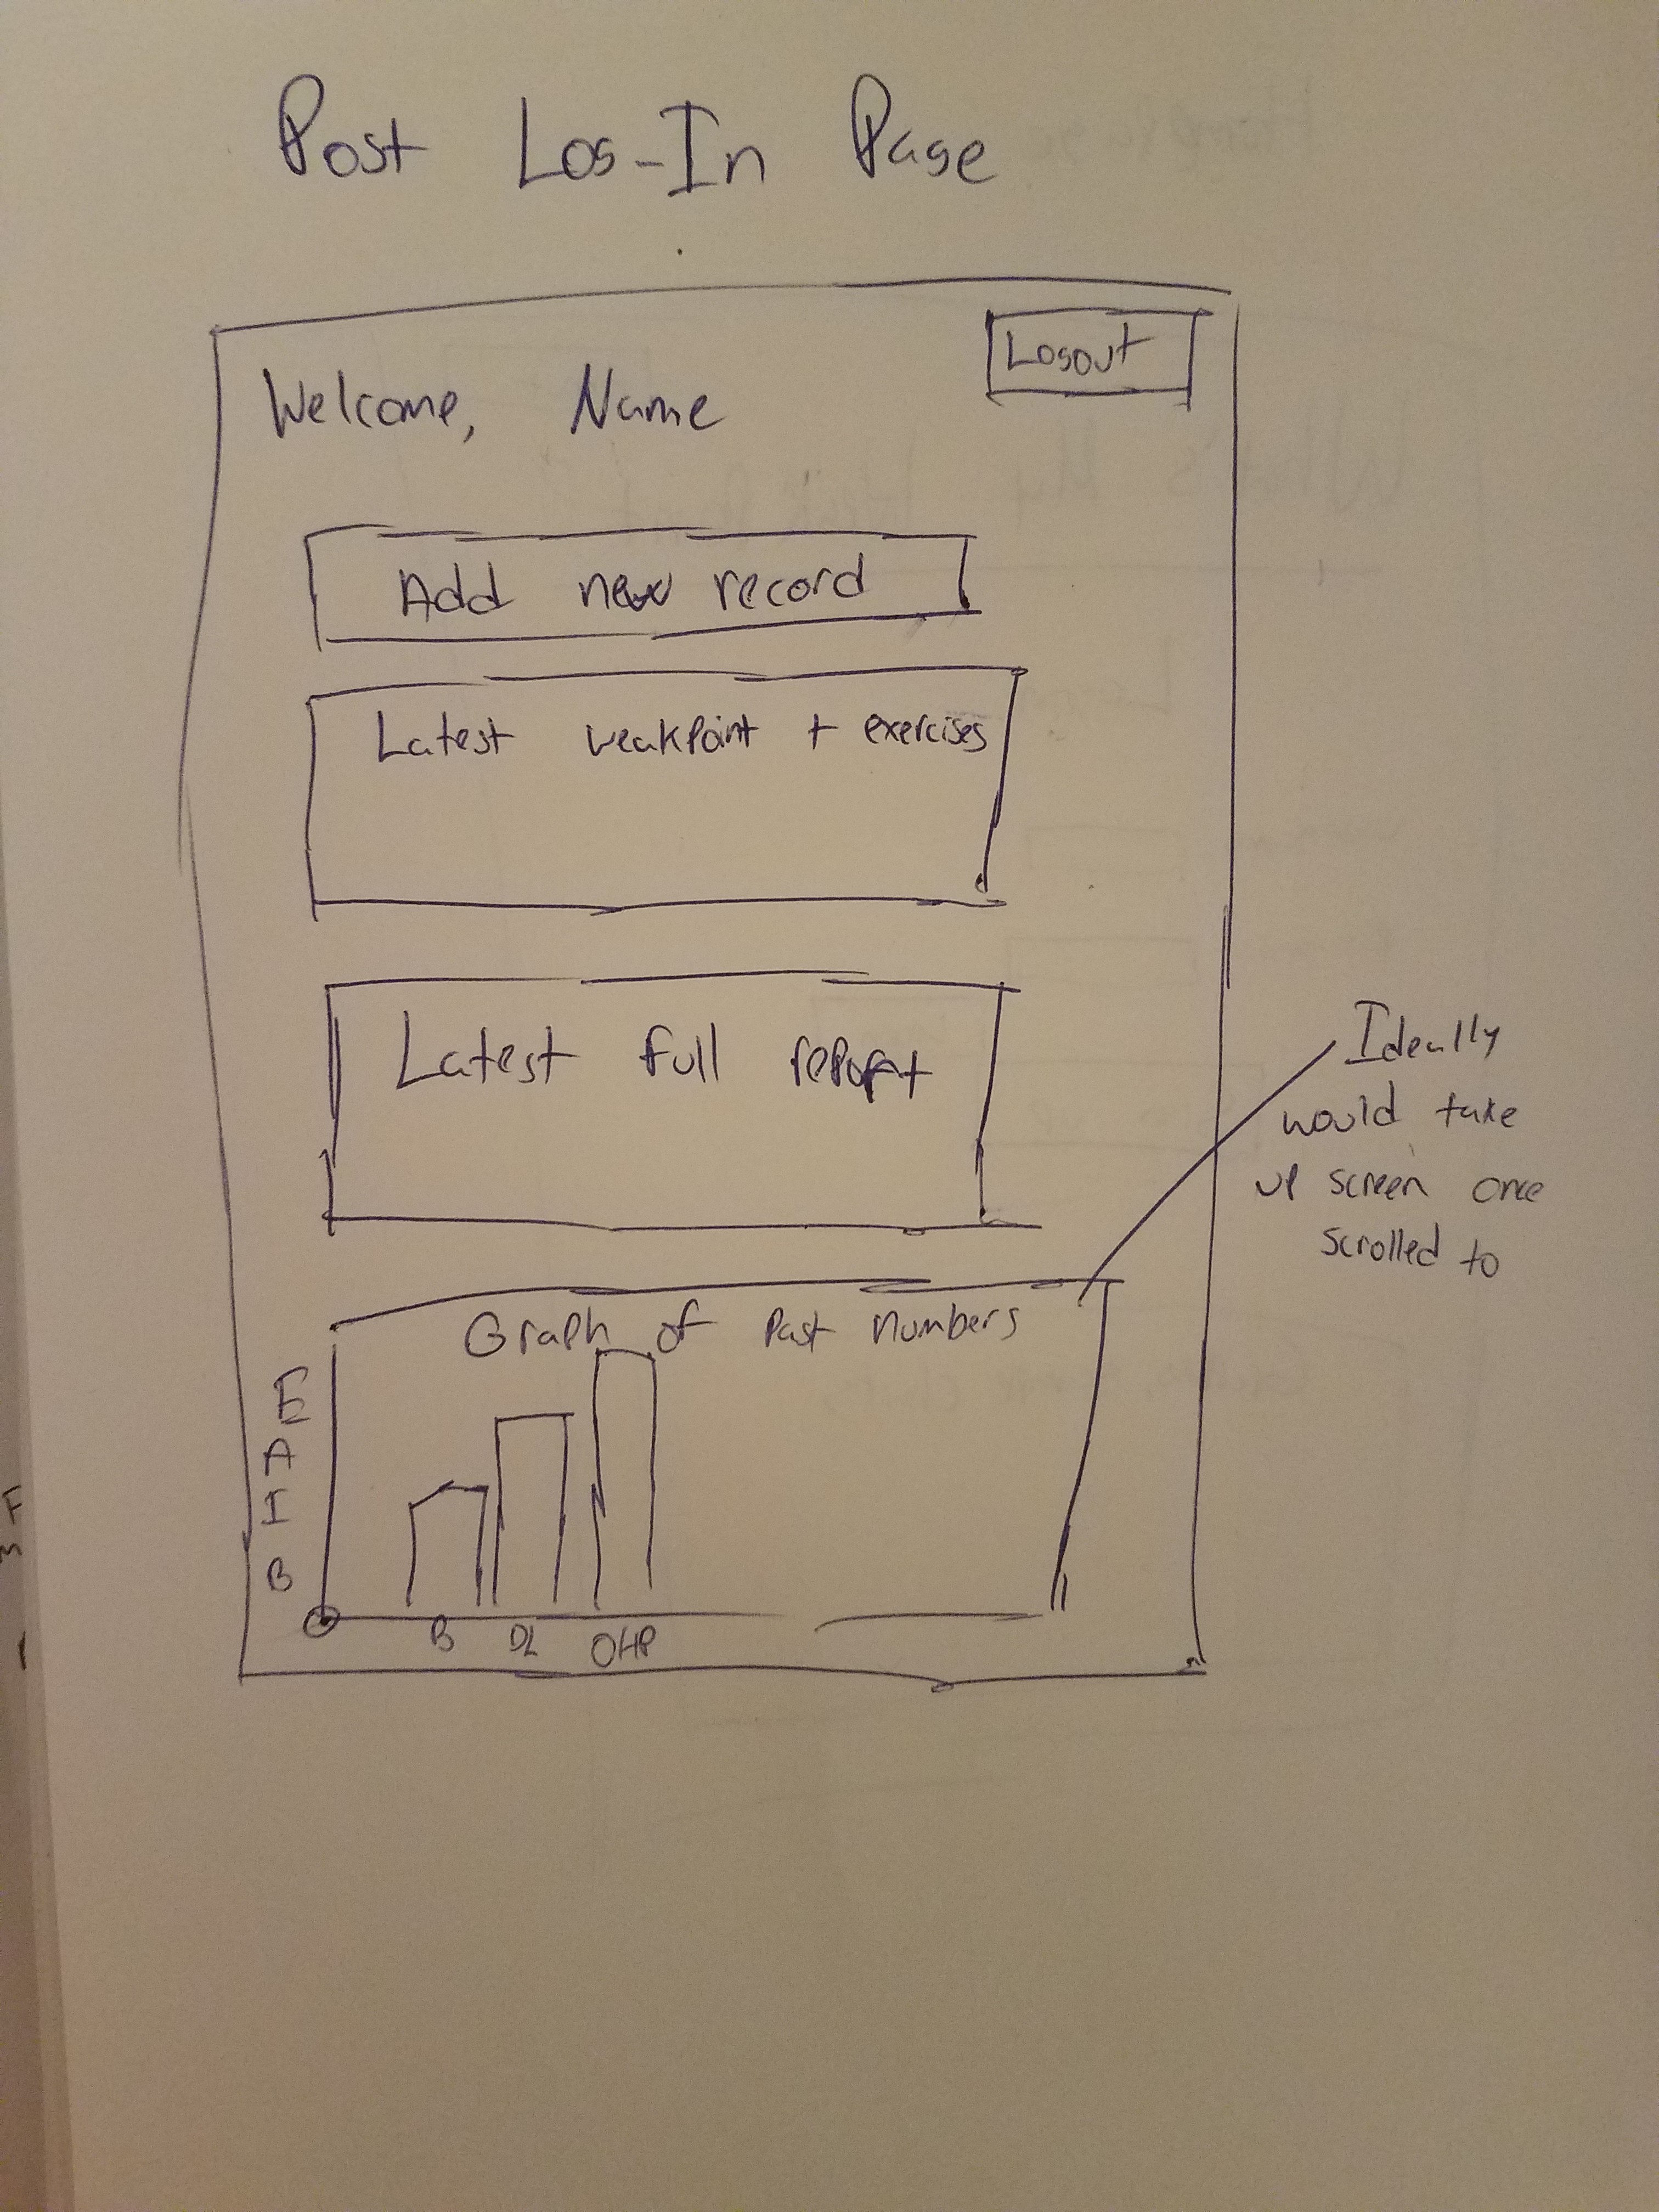 Post Log-In Page
Logout
Welcome, Name
Add new record
Latest weakpoint + exercises
Latest full report
Ideally
would take
up screen once
scrolled to
Graph of Past numbers
E
A
I
B
B DL OHP
F